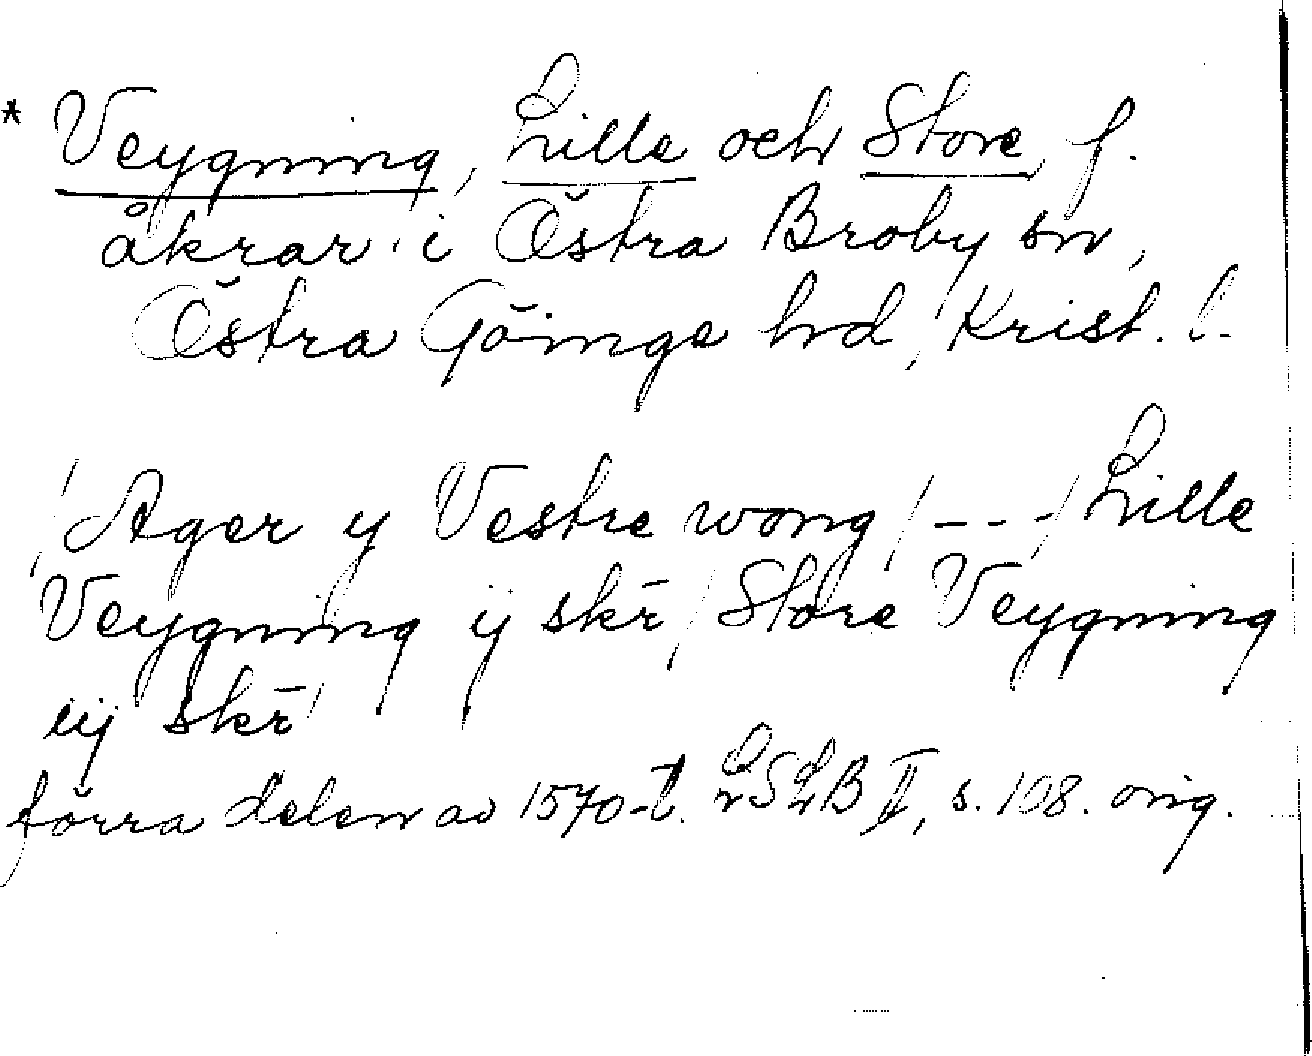 * Veygning, Lille och Store, f.
åkrar i Östra Broby sn,
Östra Göinge hd, Krist. l.
/Ager y Vestre wong/ - - - / Lille
Veygning ij skr̄ / Store Veygning
iij skr̄/
förra delen av 1570-t. LSLB II, s. 108. orig.